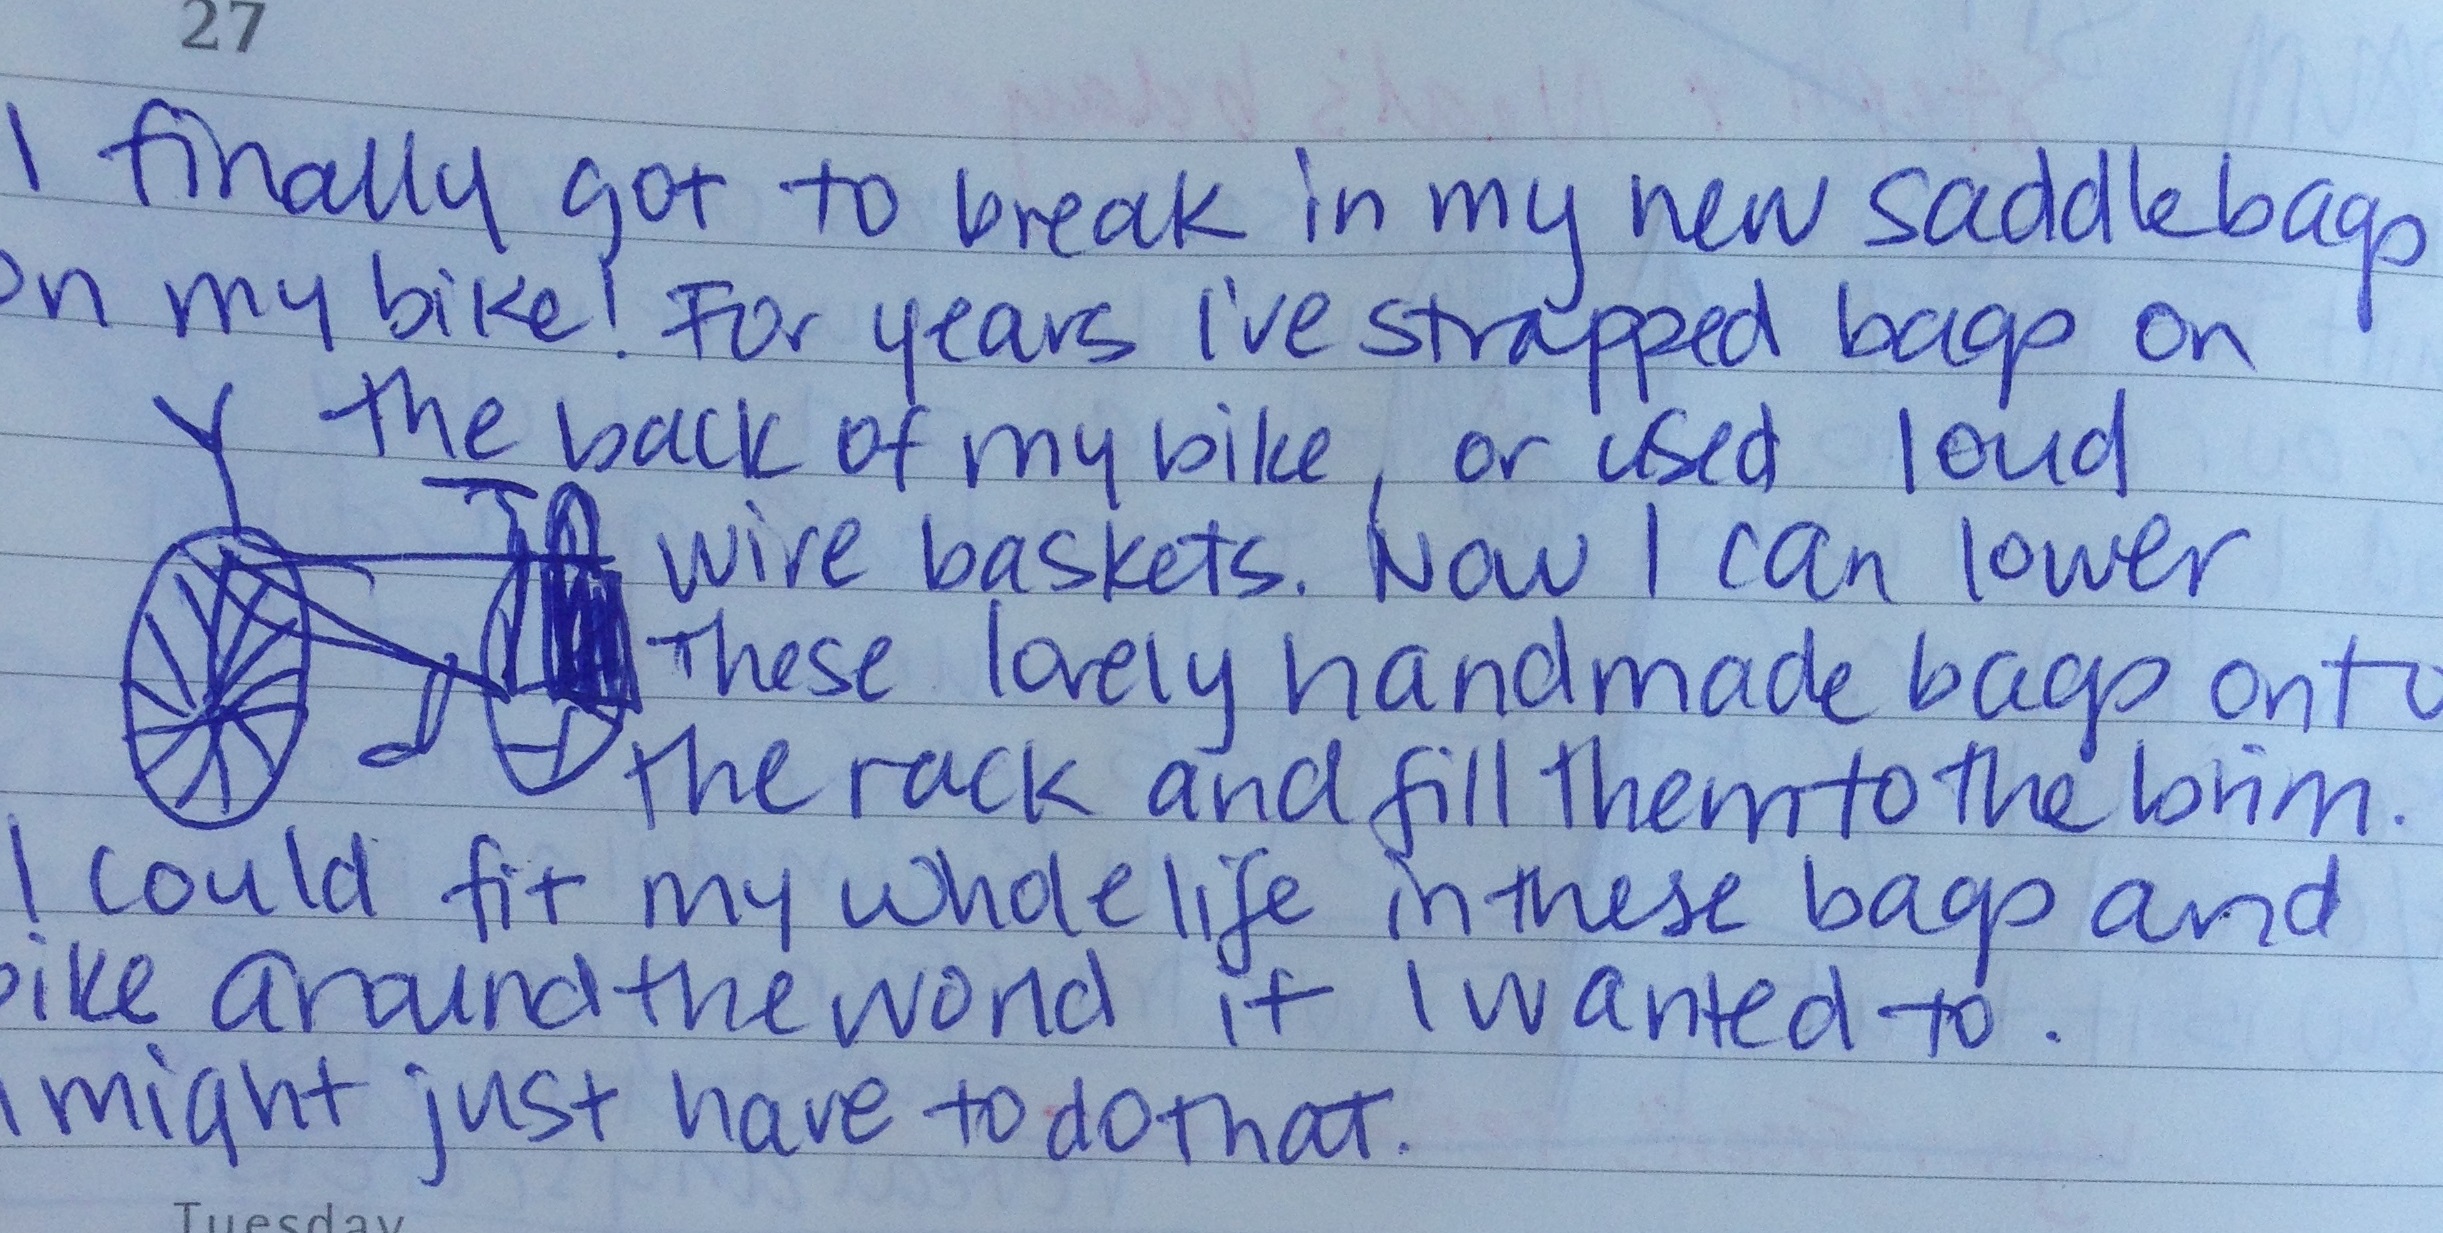 27
I finally got to break in my new saddlebags
on my bike! For years I've strapped bags on
the back of my bike, or used loud
wire baskets. Now I can lower
These lovely handmade bags onto
the rack and fill them to the brim.
I could fit my whole life in these bags and
bike around the world if I wanted to.
I might just have to do that.
Tuesday